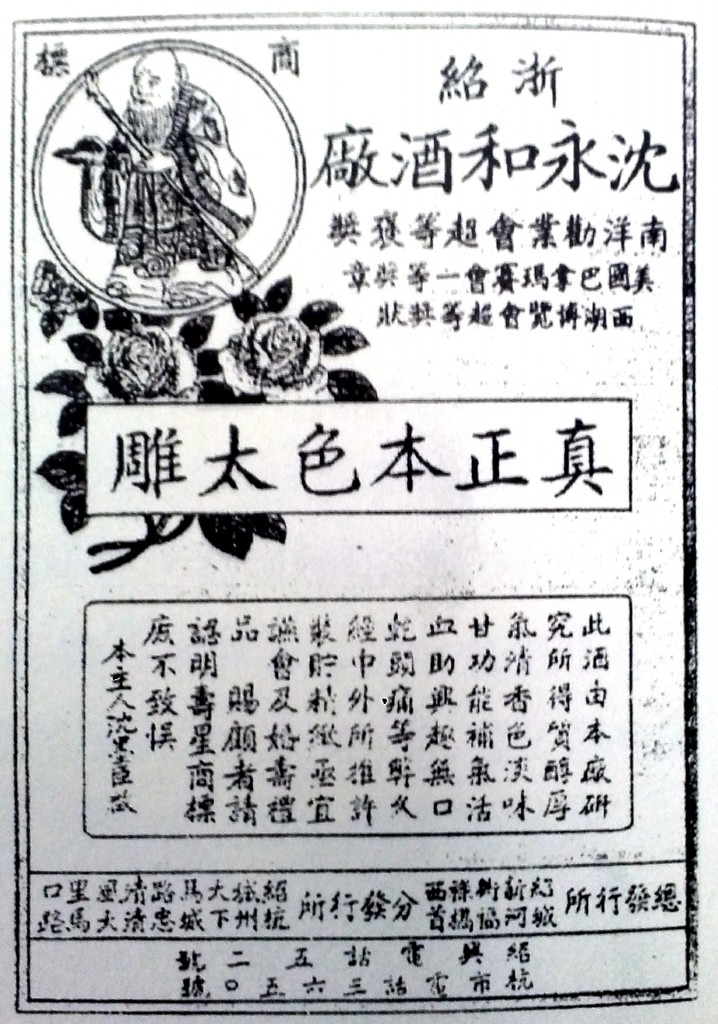 商標
浙紹
沈永和酒廠
南洋勸業會超等獲獎
美國巴拿瑪賽會一等獎章
西湖博覽會超等獎狀
真正本色太雕
此酒由本廠研
究所得質醇厚
氣清香色淡味
甘功能補氣活
血助興趣無口
乾頭痛等弊久
經中外所推許
裝貯精緻亟宜
讌會及婚壽禮
品 賜顧者請
認明壽星商標
庶不致悮
本主人沈墨臣啟
總發行所
紹城新河衖福祿橋西首
分發行所
紹城大馬路清風里口
杭州下城忠清大馬路
紹興電話五二號
杭市電話三六五〇號